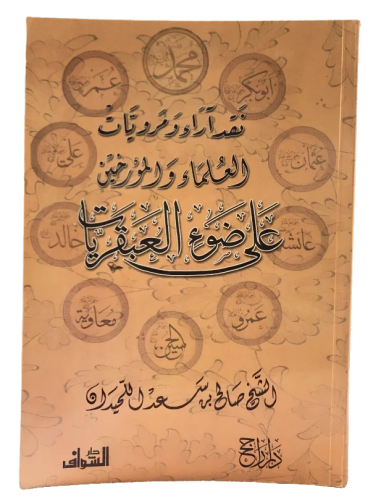 محمد
عمر
أبوبكر
نقد آراء ومرويات
العلماء والمؤرخين
علي
عثمان
على ضوء العبقريات
خالد
عائشة
معاوية
عمرو
الحسين
الشيخ صالح بن سعد اللحيدان
دار الشواف
دار أراجح